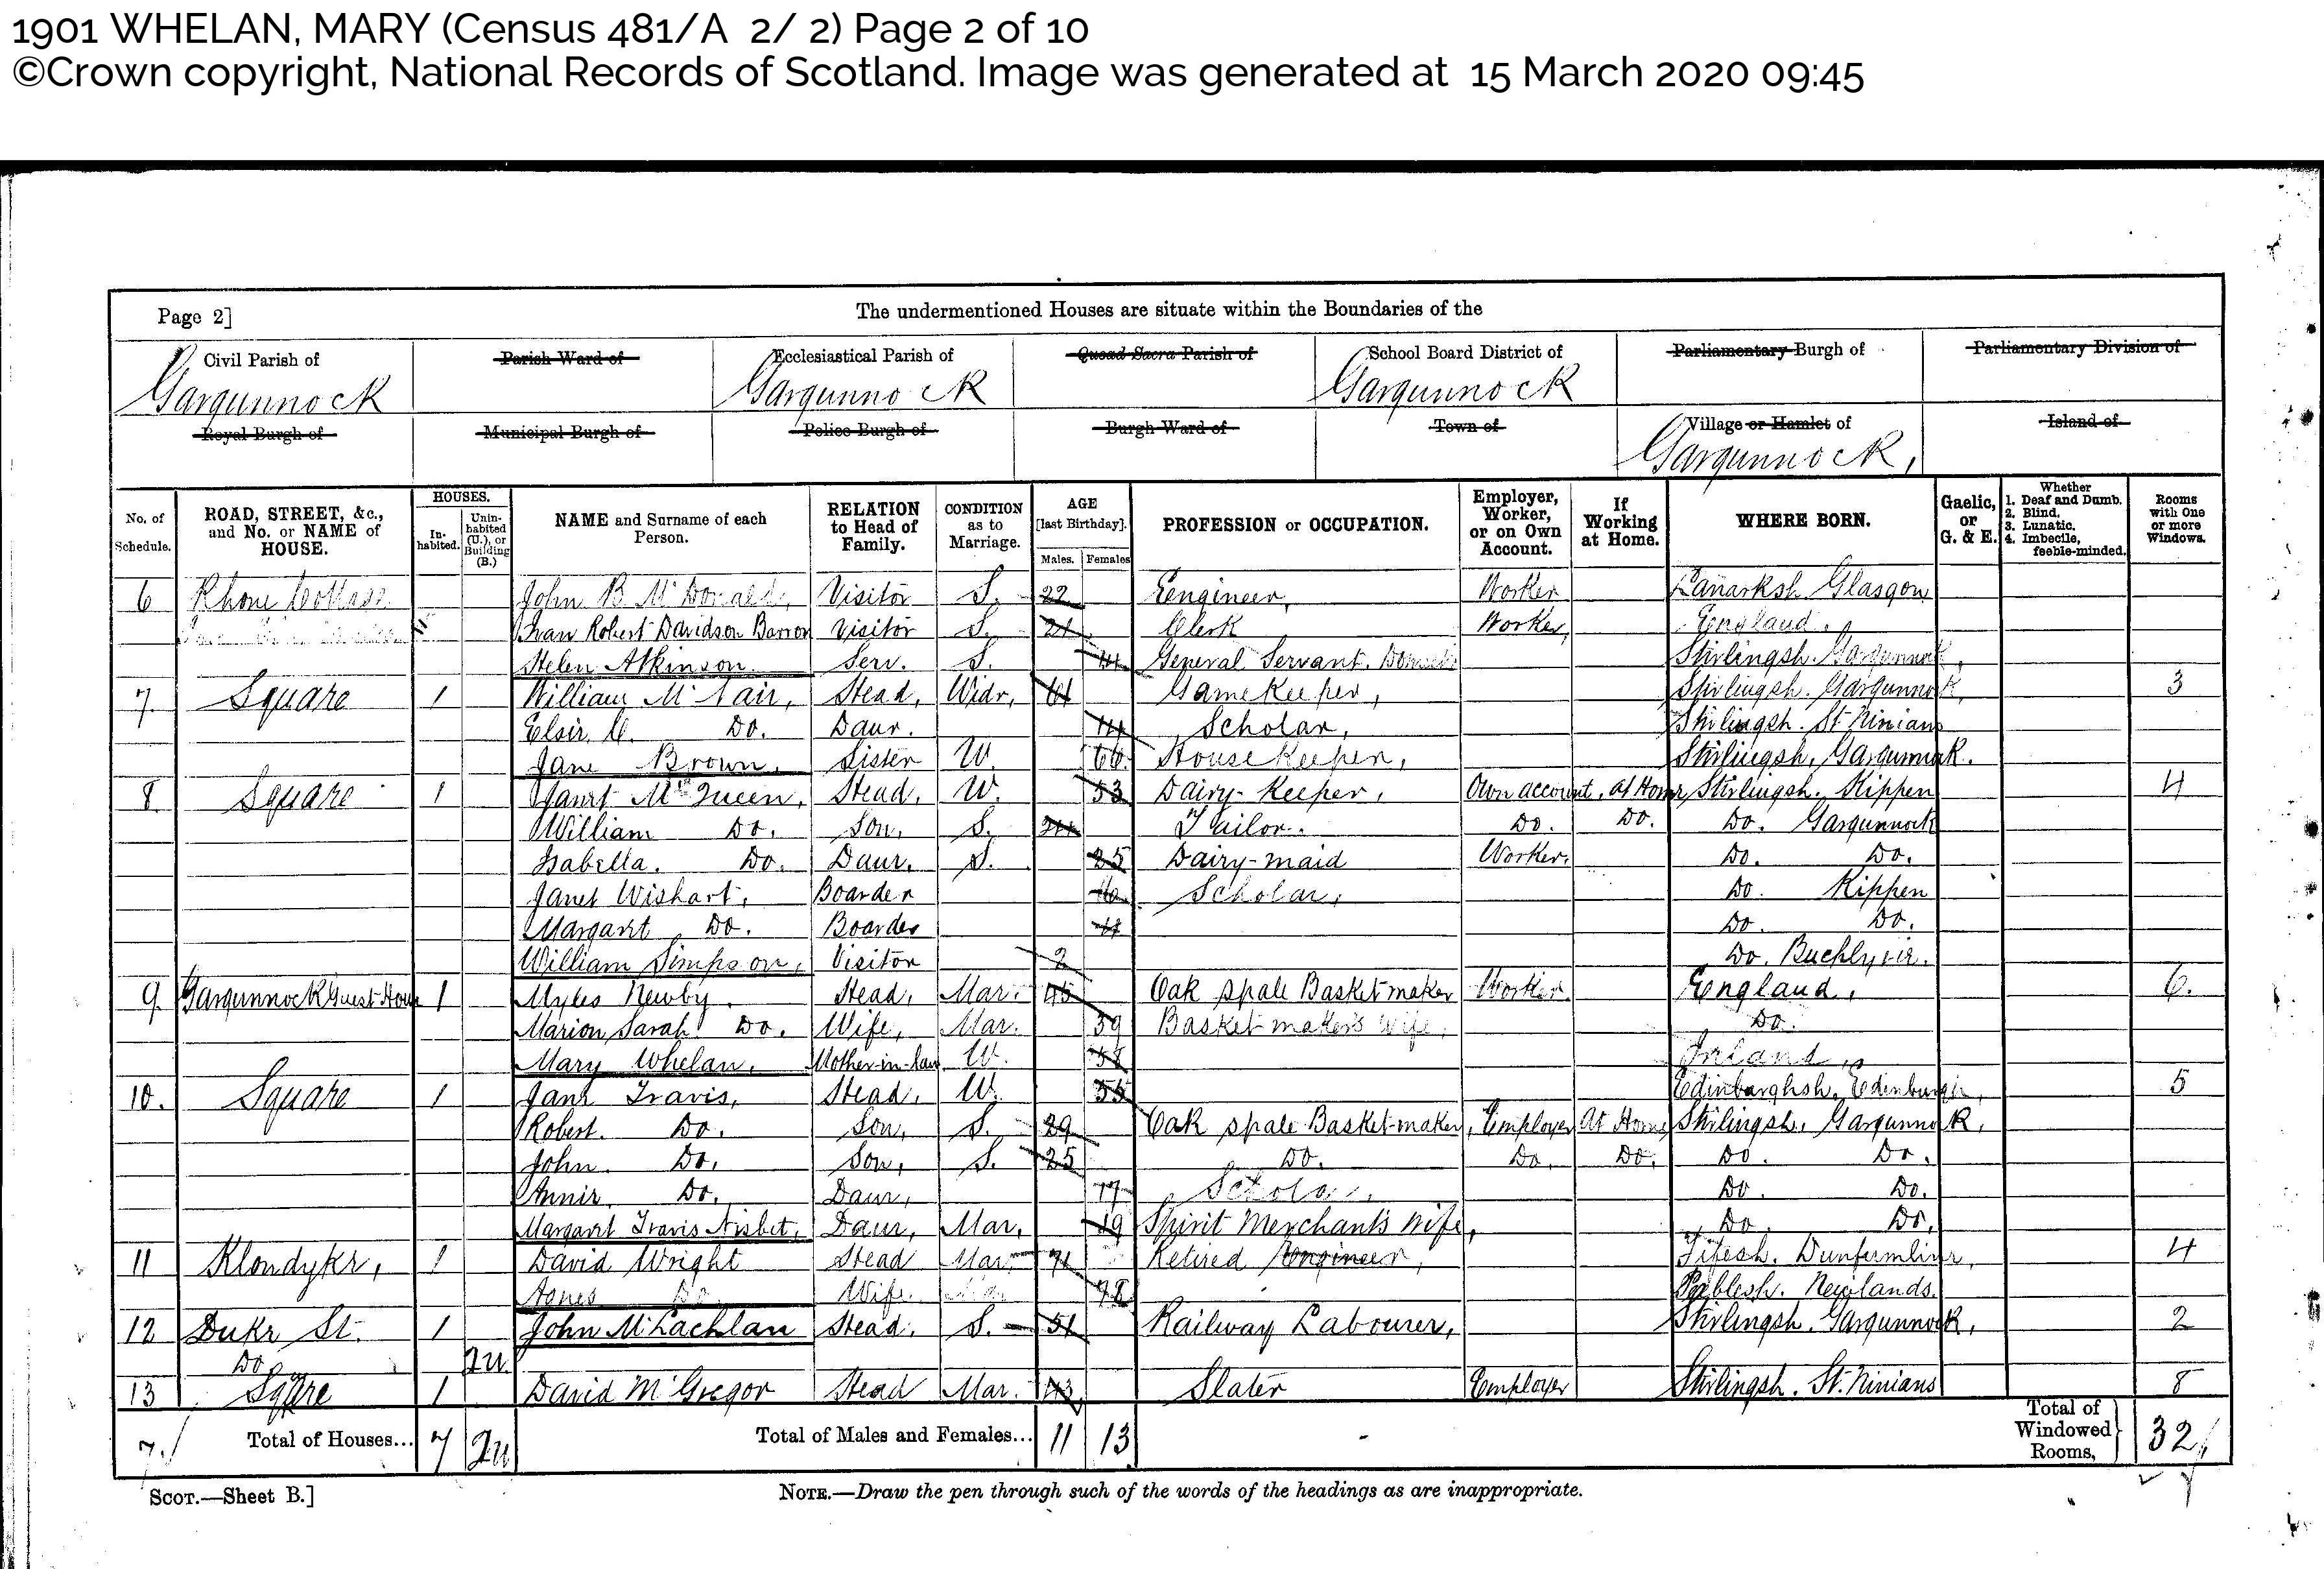 1901 WHELAN, MARY (Census 481/A 2/ 2) Page 2 of 10
©Crown copyright, National Records of Scotland. Image was generated at 15 March 2020 09:45
Page 2] The undermentioned Houses are situate within the Boundaries of the
Civil Parish of Parish Ward of Ecclesiastical Parish of Quoad Sacra Parish of School Board District of Parliamentary Burgh of Parliamentary Division of
Gargunnock Gargunnock Gargunnock
Royal Burgh of Municipal Burgh of Police Burgh of Burgh Ward of Town of Village or Hamlet of Island of
Gargunnock,
No. of Schedule. ROAD, STREET, &c., and No. or NAME of HOUSE. HOUSES. Inhabited. Uninhabited (U.), or Building (B.) NAME and Surname of each Person. RELATION to Head of Family. CONDITION as to Marriage. AGE [last Birthday]. Males. Females PROFESSION or OCCUPATION. Employer, Worker, or on Own Account. If Working at Home. WHERE BORN. Gaelic, or G. & E. Whether 1. Deaf and Dumb. 2. Blind. 3. Lunatic. 4. Imbecile, feeble-minded. Rooms with One or more Windows.
6 Rhone Cottage John B McDonald, Visitor S. 22 Engineer, Worker Lanarksh Glasgow
Ivan Robert Davidson Barron Visitor S. 21 Clerk Worker, England.
Helen Atkinson. Serv. S. General Servant. Stirlingsh. Gargunnock,
7 Square 1 William McNair, Head, Widr, 61 Gamekeeper, Stirlingsh. Gargunnock, 3
Elsie C. Do. Daur. 14 Scholar, Stirlingsh. St Ninians
Jane Brown. Sister W. 66 Housekeeper, Stirlingsh, Gargunnock.
8 Square 1 Janet McQueen, Head, W. 53 Dairy-Keeper, Own account, at Home Stirlingsh. Kippen 4
William Do. Son, S. Tailor. Do. Do. Do. Gargunnock
Isabella. Do. Daur, S. 25 Dairy-maid Worker. Do. Do.
Janet Wishart, Boarder Scholar, Do. Kippen
Margaret Do. Boarder Do. Do.
William Simpson, Visitor 2 Do. Buchlyvie.
9 Gargunnock Guest House 1 Myles Newby. Head, Mar. 45 Oak spale Basket-maker Worker. England, 6.
Marion Sarah Do. Wife, Mar. 39 Basket-maker's Wife, Do.
Mary Whelan, Mother-in-law W. 58 Ireland,
10. Square 1 Jane Travis, Head, W. 55 Edinburghsh. Edinburgh, 5
Robert. Do. Son, S. 29 Oak spale Basket-maker, Employer At Home Stirlingsh. Gargunnock,
John. Do, Son, S. 25 Do. Do. Do. Do. Do.
Annie. Do. Daur, Scholar, Do. Do.
Margaret Travis Nisbet, Daur, Mar, 19 Spirit Merchant's Wife, Do. Do.
11 Klondyke, 1 David Wright Head Mar 71 Retired Engineer, Fifesh. Dunfermline, 4
Agnes Do. Wife. Peeblesh. Newlands.
12 Duke St. 1 John McLachlan Head. S. 51 Railway Labourer, Stirlingsh. Gargunnock, 2
Do 2u
13 Square 1 David McGregor Head Mar. 43 Slater Employer Stirlingsh. St. Ninians 8
7. Total of Houses... 7 2u Total of Males and Females... 11 13 Total of Windowed Rooms, 32
SCOT.—Sheet B.] NOTE.—Draw the pen through such of the words of the headings as are inappropriate.